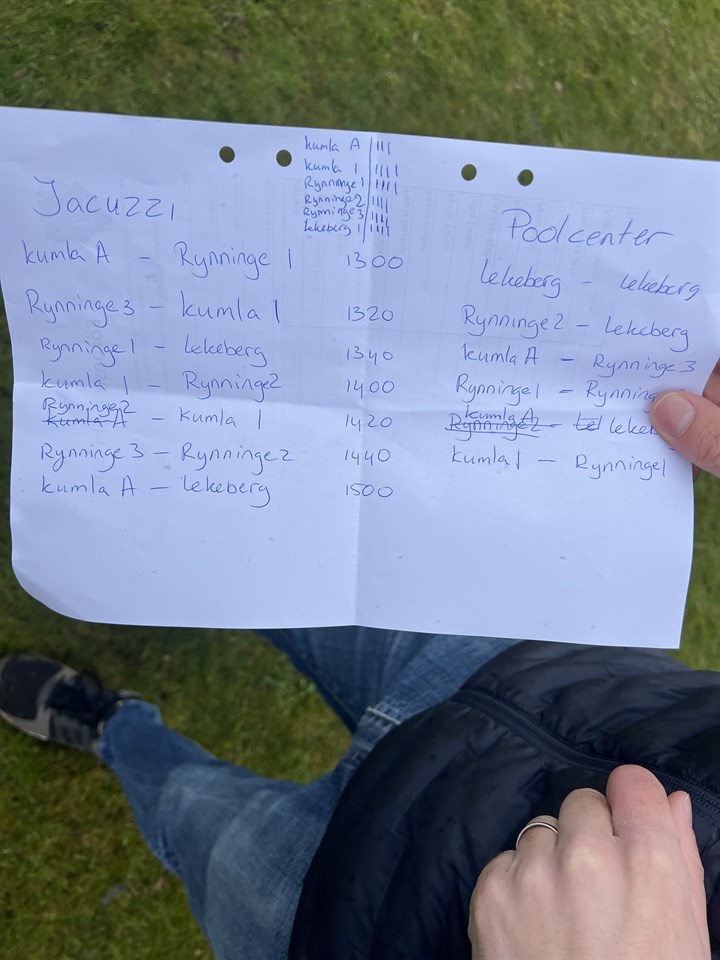 Kumla A | III
Kumla 1 | IIII
Rynninge 1 | IIII
Rynninge2 | IIII
Rynninge3 | IIII
Lekeberg 1 | IIII
Jacuzzi
Kumla A - Rynninge 1 1300
Rynninge3 - Kumla 1 1320
Rynninge1 - Lekeberg 1340
Kumla 1 - Rynninge2 1400
Rynninge2
Kumla A - Kumla 1 1420
Rynninge3 - Rynninge2 1440
Kumla A - Lekeberg 1500
Poolcenter
Lekeberg - Lekeberg
Rynninge2 - Lekeberg
Kumla A - Rynninge3
Rynninge1 - Rynning
Kumla A
Rynninge2 - Le Lekeb
Kumla1 - Rynninge1